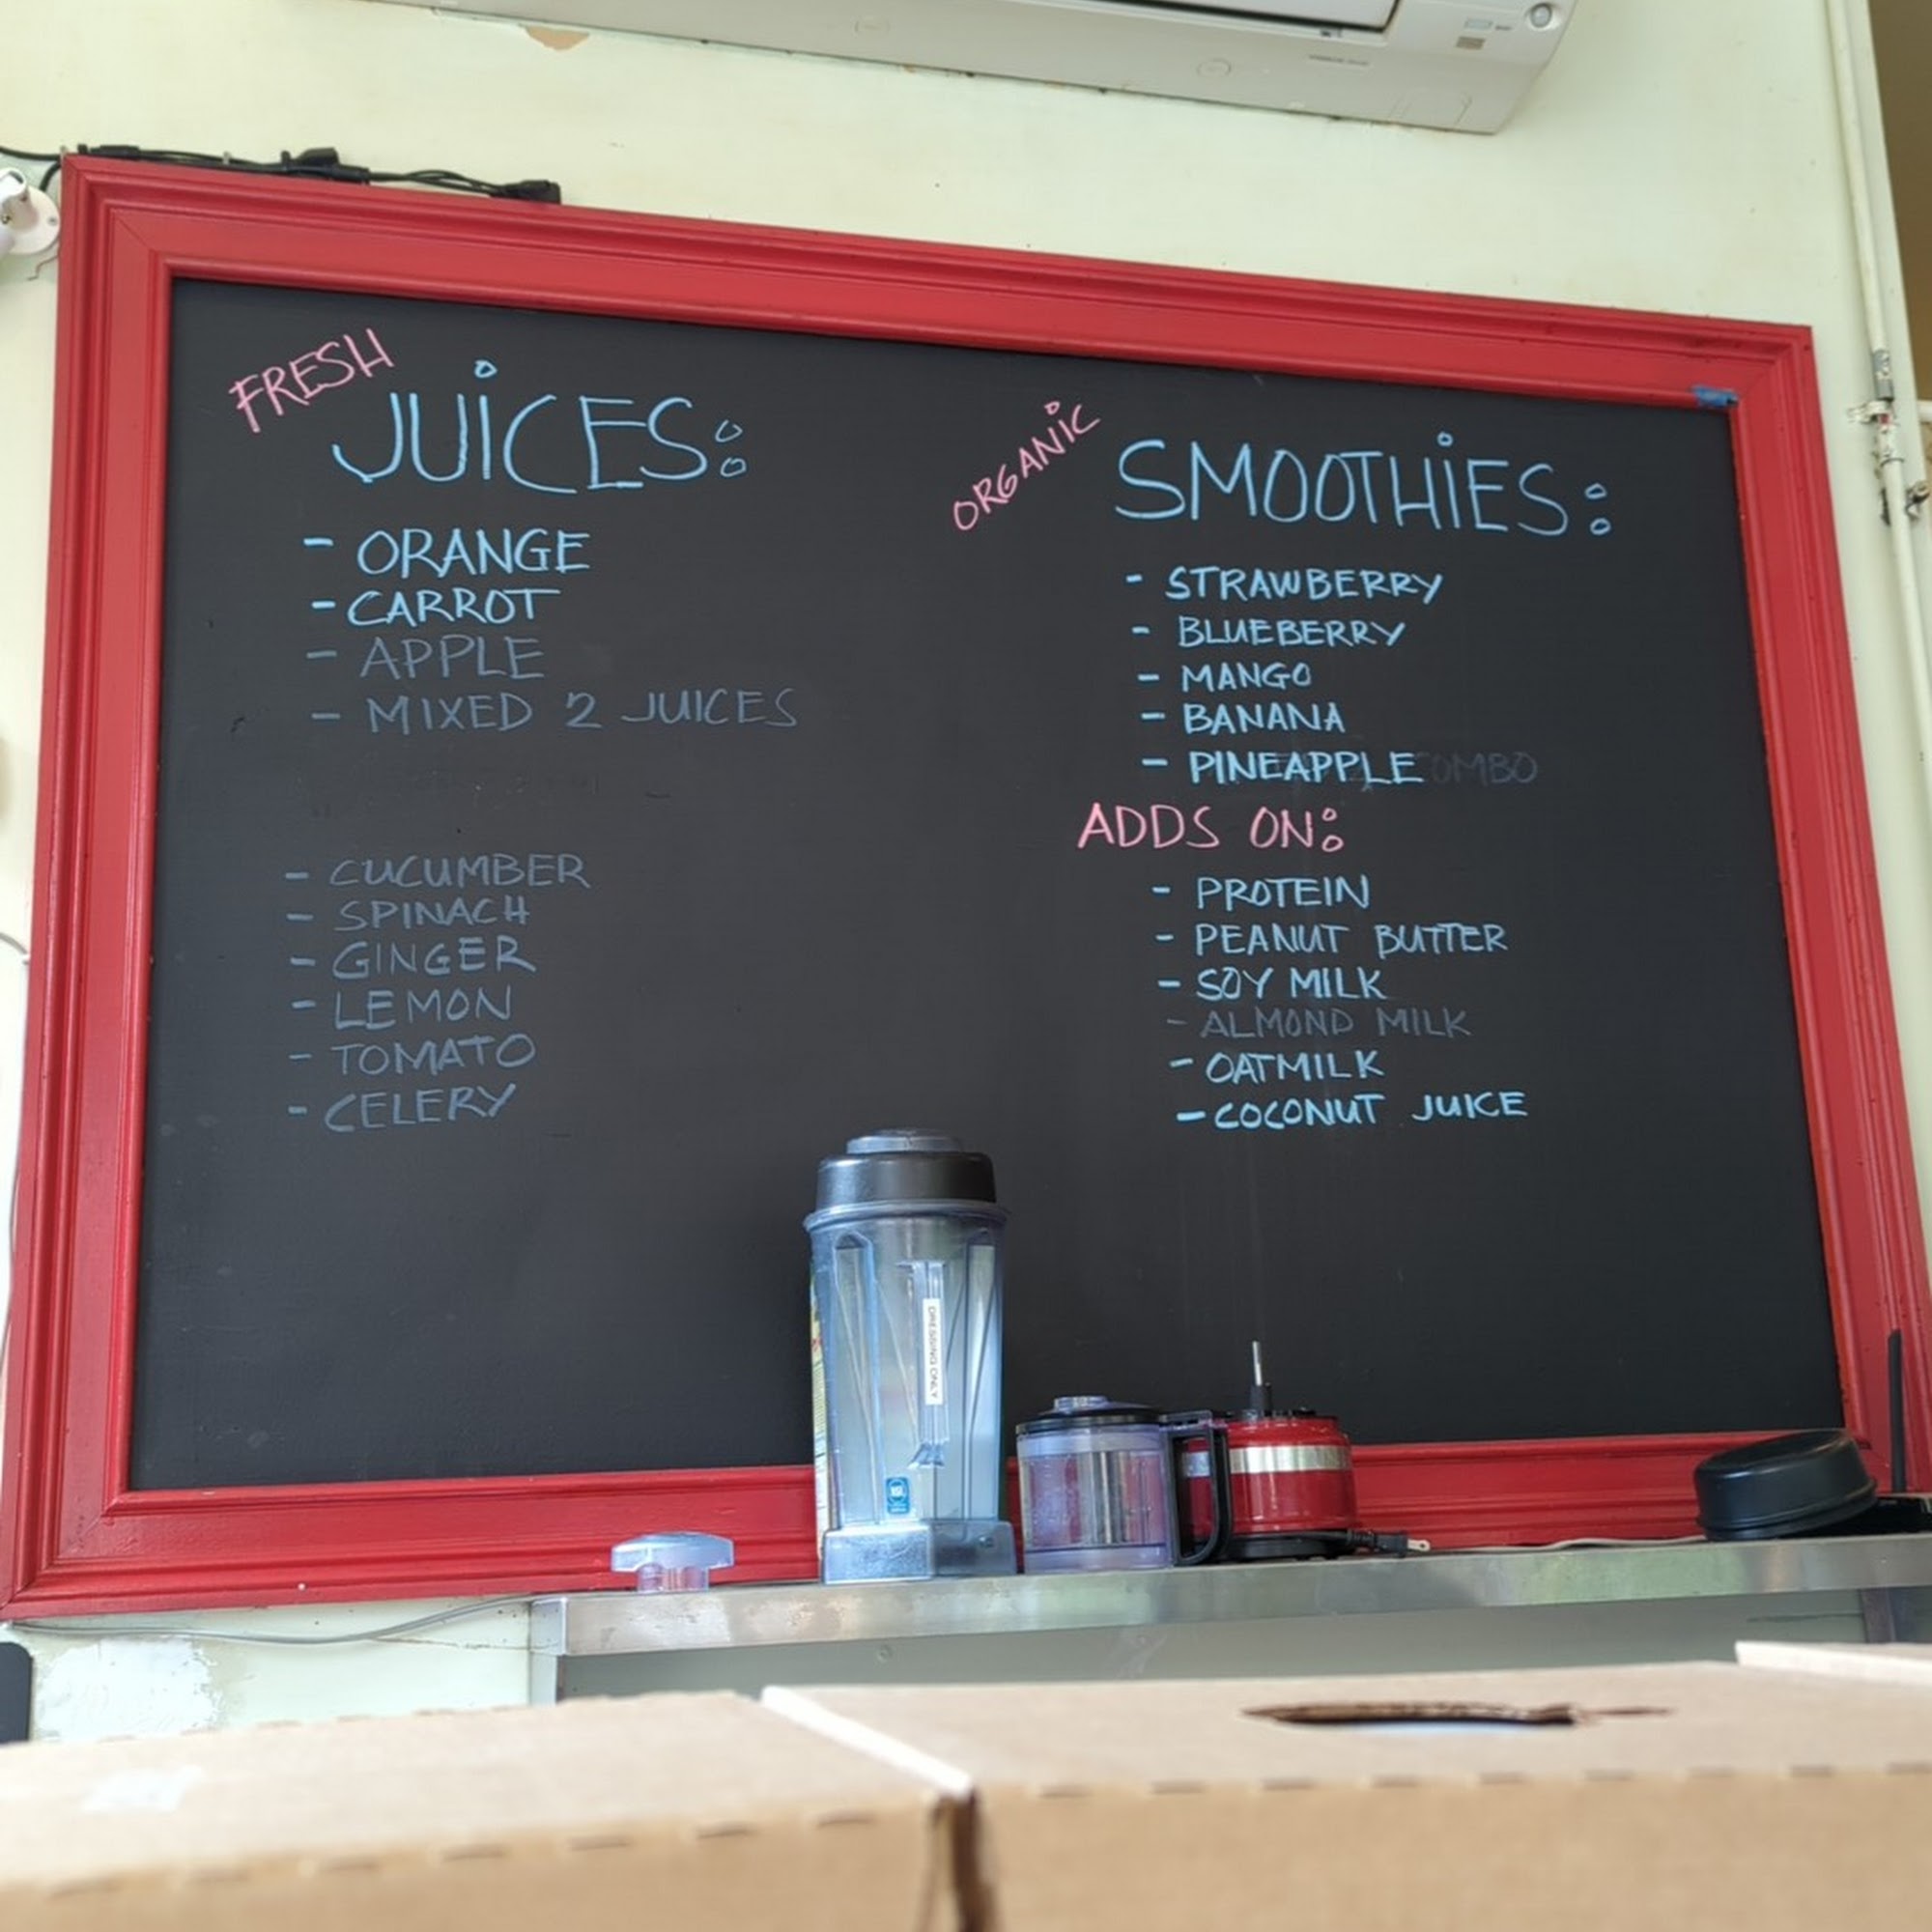 FRESH
JUICES:
- ORANGE
- CARROT
- APPLE
- MIXED 2 JUICES
- CUCUMBER
- SPINACH
- GINGER
- LEMON
- TOMATO
- CELERY
ORGANIC
SMOOTHIES:
- STRAWBERRY
- BLUEBERRY
- MANGO
- BANANA
- PINEAPPLE COMBO
ADDS ON:
- PROTEIN
- PEANUT BUTTER
- SOY MILK
- ALMOND MILK
- OATMILK
- COCONUT JUICE
DRESSING ONLY
NSF